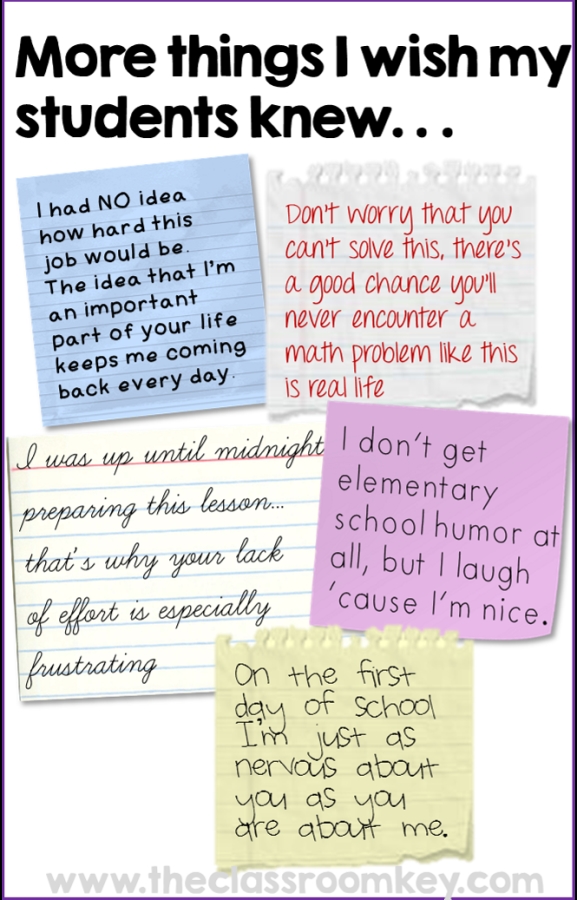 More things I wish my
students knew...
I had NO idea
how hard this
job would be.
The idea that I'm
an important
part of your life
keeps me coming
back every day.
Don't worry that you
can't solve this, there's
a good chance you'll
never encounter a
math problem like this
is real life
I was up until midnight
preparing this lesson...
that's why your lack
of effort is especially
frustrating
I don't get
elementary
school humor at
all, but I laugh
'cause I'm nice.
On the first
day of school
I'm just as
nervous about
you as you
are about me.
www.theclassroomkey.com